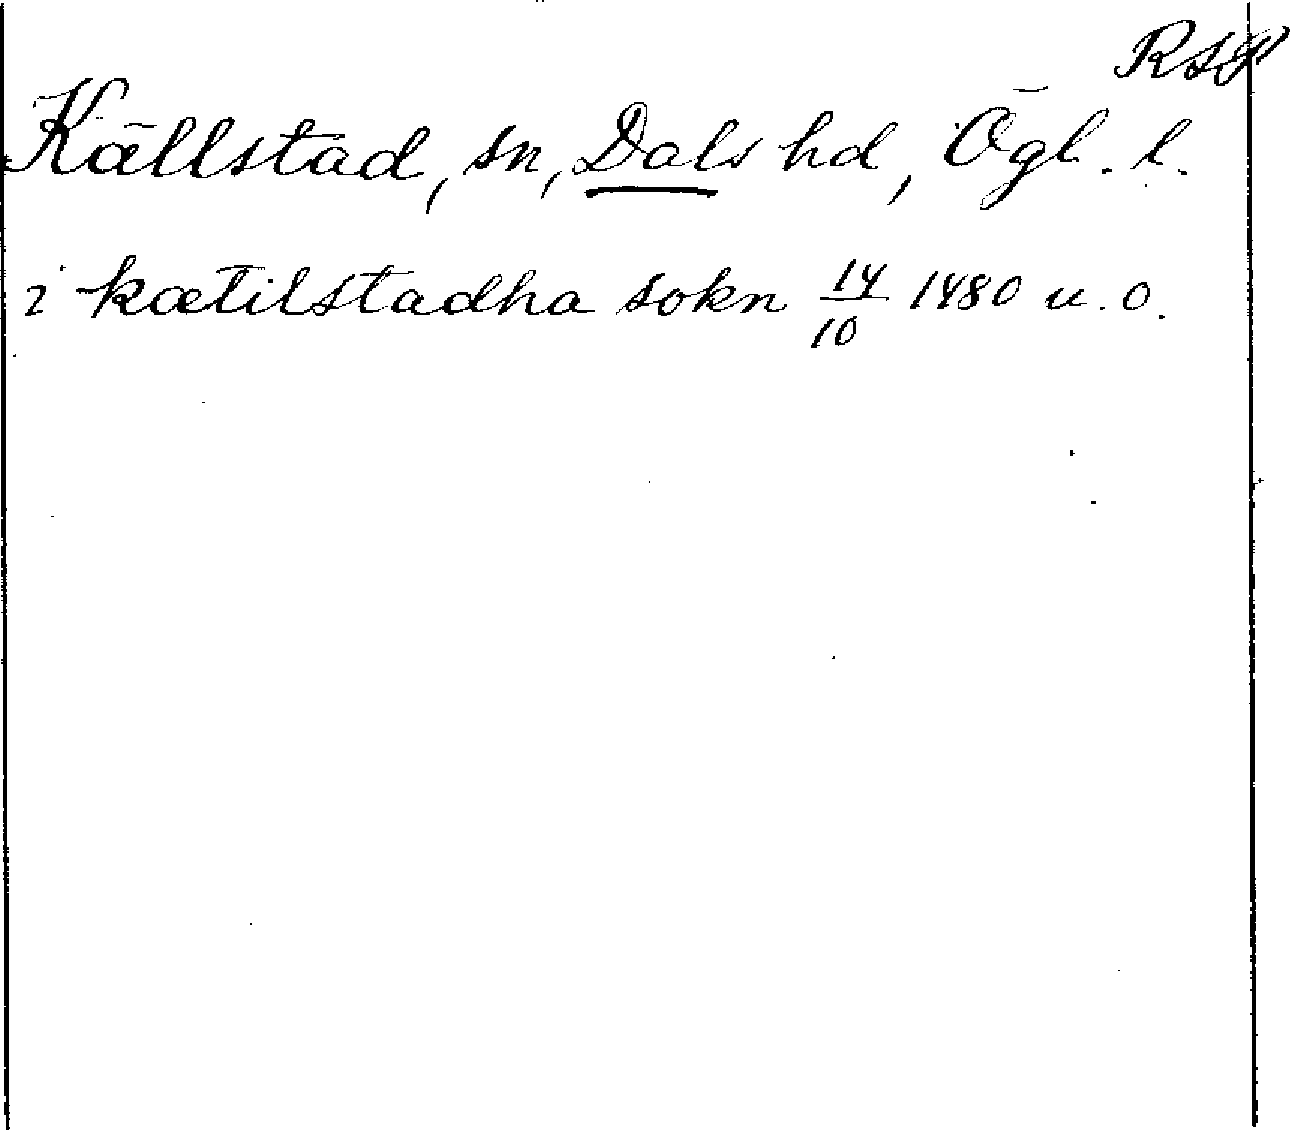 RSP
Källstad, sn, Dals hd, Ögl. l.
i kætilstadha sokn 14/10 1480 u. o.